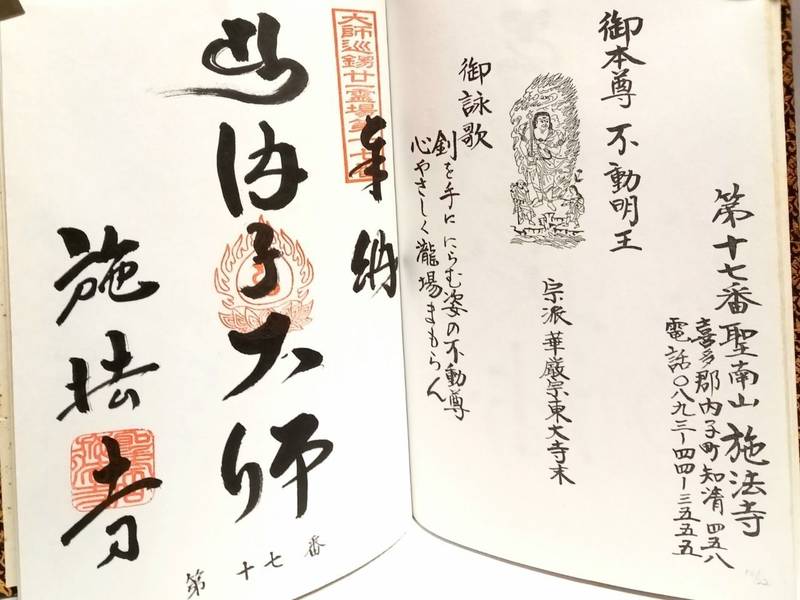 第十七番聖南山施法寺
喜多郡内子町知清四五八
電話〇八九三ー四四ー三五五五
御本尊 不動明王
宗派 華厳宗東大寺末
御詠歌
釗を手ににらむ姿の不動尊
心やさしく瀧場まもらん
大師巡錫廿一霊場第十七番
奉納
内子大師
施法寺
第十七番